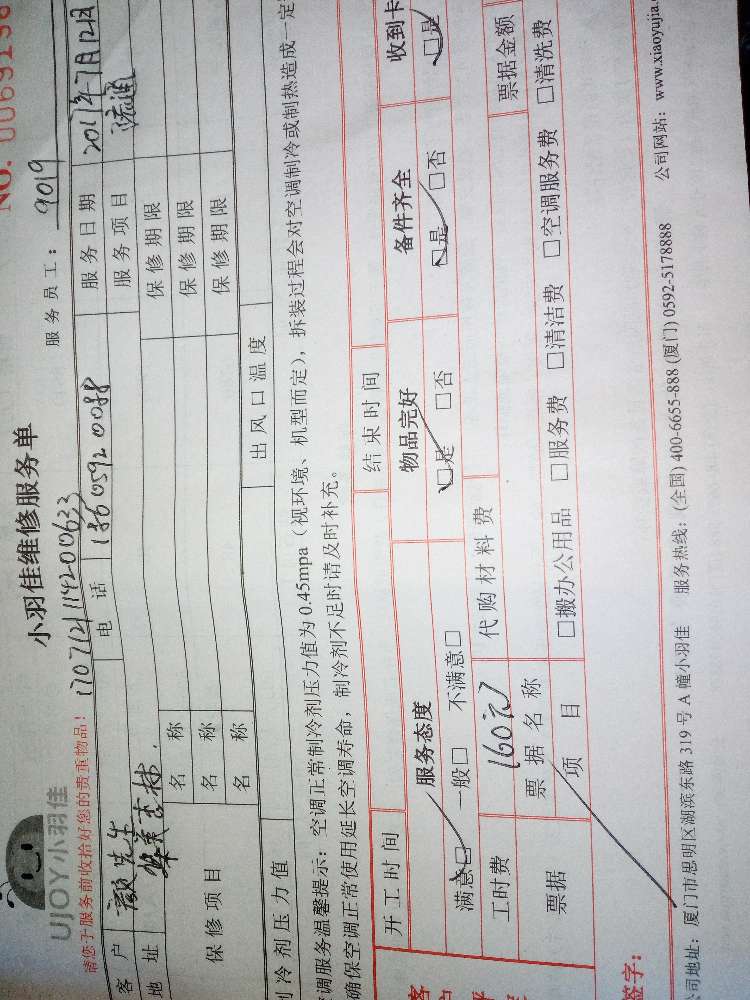 NO. 0069196
UJOY小羽佳
小羽佳维修服务单
服务员工： 9019
请您于服务前收拾好您的贵重物品！ 170712114200633
客户 颜先生 电话 18605920088 服务日期 2017年7月12日
地址 服务项目
保修项目 名称 保修期限
名称 保修期限
名称 保修期限
冷剂压力值 出风口温度
调服务温馨提示：空调正常制冷剂压力值为0.45mpa（视环境、机型而定），拆装过程会对空调制冷或制热造成一定
确保空调正常使用延长空调寿命，制冷剂不足时请及时补充。
开工时间 结束时间
服务态度 物品完好 备件齐全 收到卡
满意□ 一般□ 不满意□ □是 □否 □是 □否 □是
工时费 160元 代购材料费
票据 票据名称 票据金额
项目 □搬办公用品 □服务费 □清洁费 □空调服务费 □清洗费
签字：
司地址：厦门市思明区湖滨东路319号A幢小羽佳 服务热线：(全国) 400-6655-888 (厦门) 0592-5178888 公司网站：www.xiaoyujia.